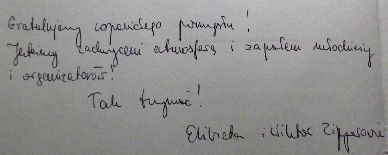 Gratulujemy wspaniałego pomysłu!
Jesteśmy zachwyceni atmosferą i zapałem młodzieży
i organizatorów!
Tak trzymać!
Elżbieta i Wiktor Zipperowie